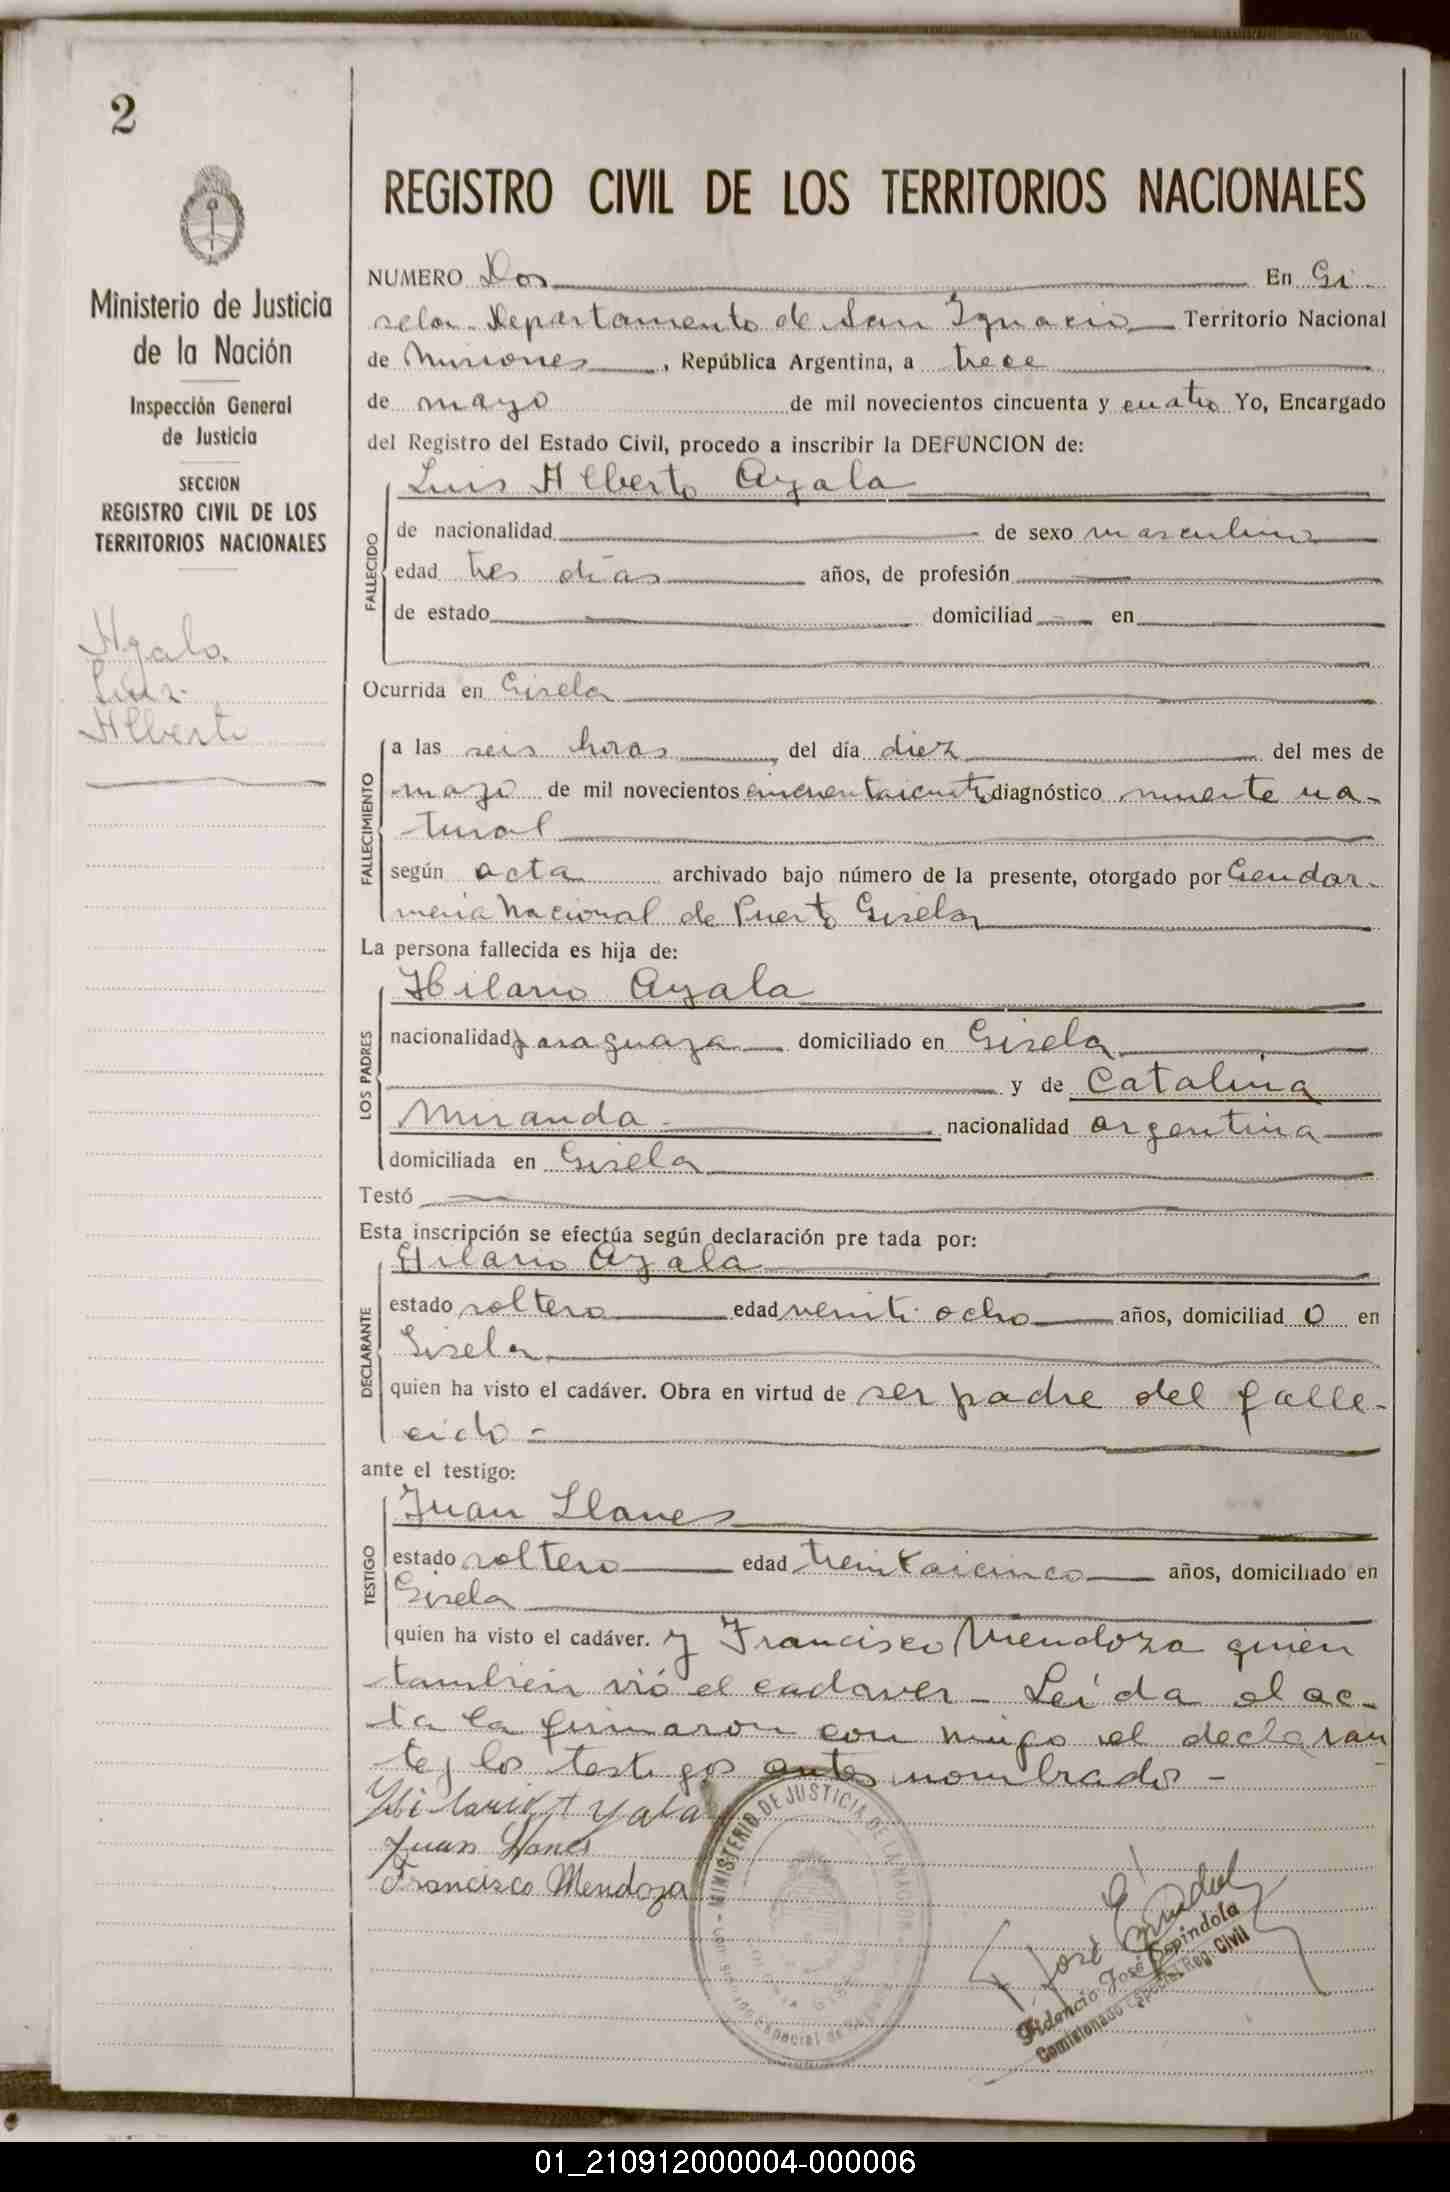 2
Ministerio de Justicia
de la Nación
Inspección General
de Justicia
SECCION
REGISTRO CIVIL DE LOS
TERRITORIOS NACIONALES
Ayala
Luis
Alberto
REGISTRO CIVIL DE LOS TERRITORIOS NACIONALES
NUMERO Dos En Gi
sela Departamento de San Ignacio Territorio Nacional
de Misiones, República Argentina, a trece
de mayo de mil novecientos cincuenta y cuatro Yo, Encargado
del Registro del Estado Civil, procedo a inscribir la DEFUNCION de:
FALLECIDO
Luis Alberto Ayala
de nacionalidad de sexo masculino
edad tres días años, de profesión
de estado domiciliad en
Ocurrida en Gisela
FALLECIMIENTO
a las seis horas del día diez del mes de
mayo de mil novecientos cincuentaicuatro diagnóstico muerte na-
tural
según acta archivado bajo número de la presente, otorgado por Gendar-
meria Nacional de Puerto Gisela
La persona fallecida es hija de:
LOS PADRES
Hilario Ayala
nacionalidad paraguaya domiciliado en Gisela
y de Catalina
Miranda nacionalidad argentina
domiciliada en Gisela
Testó
Esta inscripción se efectúa según declaración pre tada por:
DECLARANTE
Hilario Ayala
estado soltero edad veinti ocho años, domiciliad o en
Gisela
quien ha visto el cadáver. Obra en virtud de ser padre del falle-
cido -
ante el testigo:
TESTIGO
Juan Llanes
estado soltero edad treintaicinco años, domiciliado en
Gisela
quien ha visto el cadáver. y Francisco Mendoza quien
tambien vió el cadaver - Leida el ac-
ta la firmaron con migo el declaran
te y los testigos antes nombrados -
Hilario Ayala
Juan Llanes
Francisco Mendoza
MINISTERIO DE JUSTICIA DE LA NACION
F José Espíndola
Fidencio José Espíndola
Comisionado Especial Reg. Civil
01_210912000004-000006